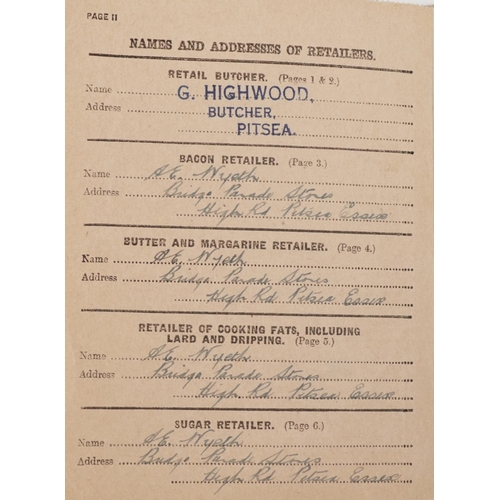 PAGE II
NAMES AND ADDRESSES OF RETAILERS.
RETAIL BUTCHER. (Pages 1 & 2.)
Name G. HIGHWOOD,
Address BUTCHER,
PITSEA.
BACON RETAILER. (Page 3.)
Name A.E. Wyeth
Address Bridge Parade Stores
High Rd Pitsea Essex
BUTTER AND MARGARINE RETAILER. (Page 4.)
Name A.E. Wyeth
Address Bridge Parade Stores
High Rd Pitsea Essex
RETAILER OF COOKING FATS, INCLUDING
LARD AND DRIPPING. (Page 5.)
Name A.E. Wyeth
Address Bridge Parade Stores
High Rd Pitsea Essex
SUGAR RETAILER. (Page 6.)
Name A.E. Wyeth
Address Bridge Parade Stores
High Rd Pitsea Essex